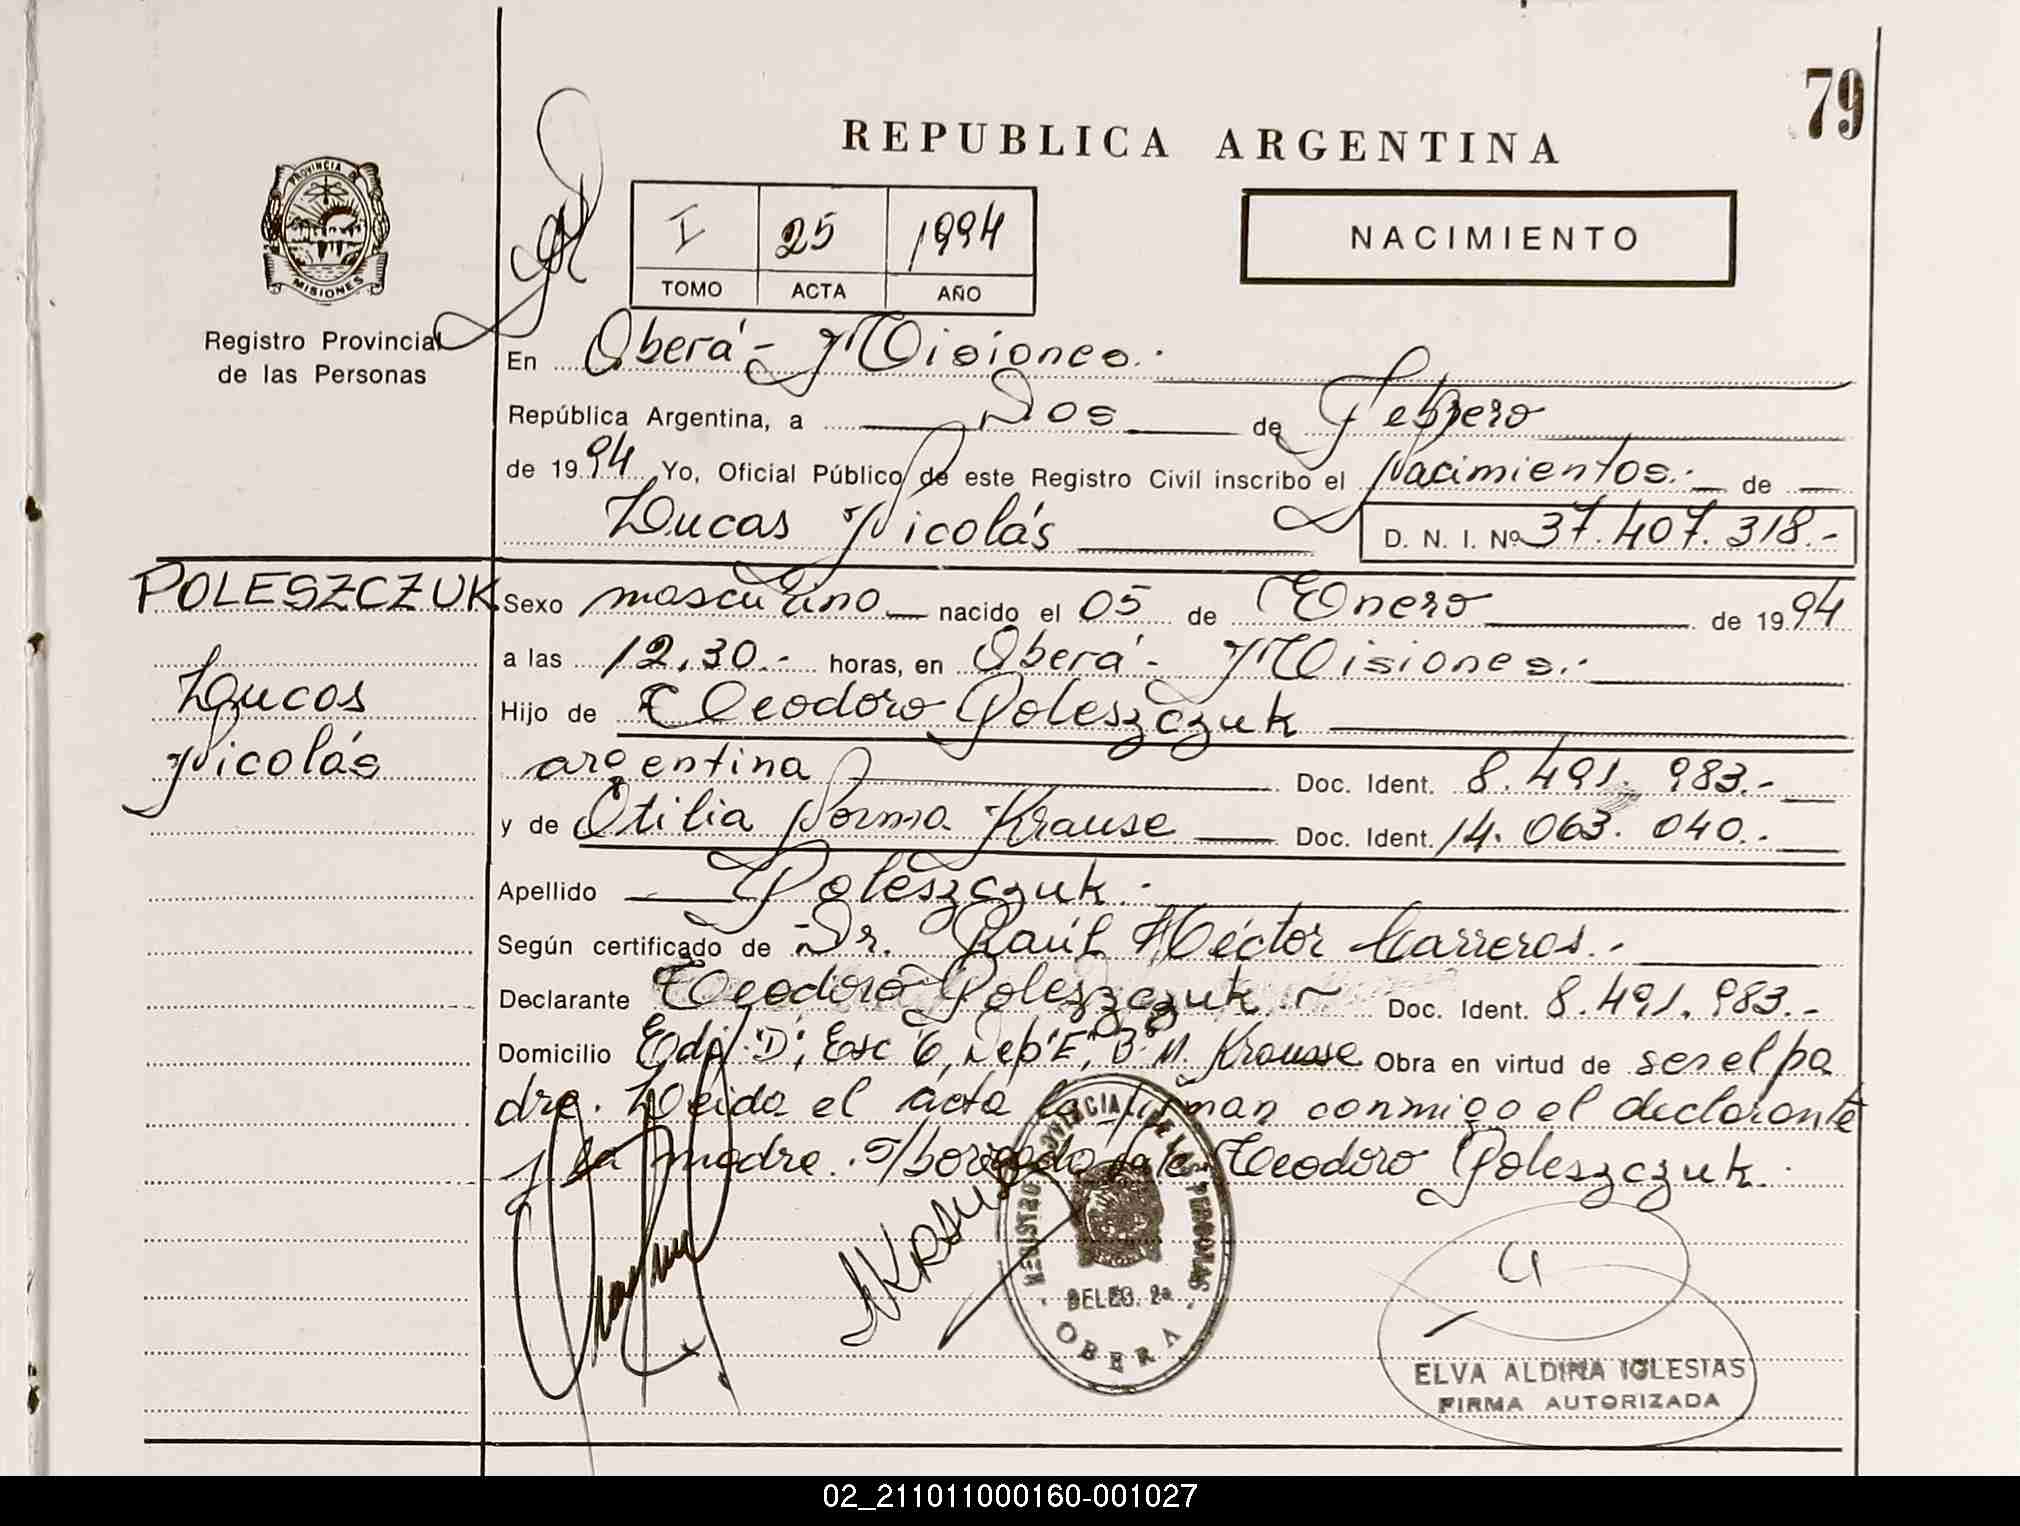 79
REPUBLICA ARGENTINA
PROVINCIA DE
MISIONES
Registro Provincial
de las Personas
I 25 1994
TOMO ACTA AÑO
NACIMIENTO
En Oberá - Misiones.-
República Argentina, a Dos de Febrero
de 1994 Yo, Oficial Público de este Registro Civil inscribo el Nacimientos.- de
Lucas Nicolás D. N. I. Nº 37.407.318.-
POLESZCZUK
Lucas
Nicolás
Sexo masculino nacido el 05 de Enero de 1994
a las 12,30.- horas, en Oberá - Misiones.-
Hijo de Teodoro Poleszczuk
argentina Doc. Ident. 8.491.983.-
y de Otilia Norma Krause Doc. Ident. 14.063.040.-
Apellido Poleszczuk.-
Según certificado de Dr. Raúl Héctor Carreros.-
Declarante Teodoro Poleszczuk Doc. Ident. 8.491.983.-
Domicilio Edif. "D", Esc "6, Dep "E", B. M. Krausse Obra en virtud de ser el pa
dre. Leida el acta la firman conmigo el declarante
y la madre. s/borrado vale Teodoro Poleszczuk.-
NKRAUSE
REGISTRO PROVINCIAL DE LAS PERSONAS
DELEG. 2a
OBERA
ELVA ALDINA IGLESIAS
FIRMA AUTORIZADA
02_211011000160-001027